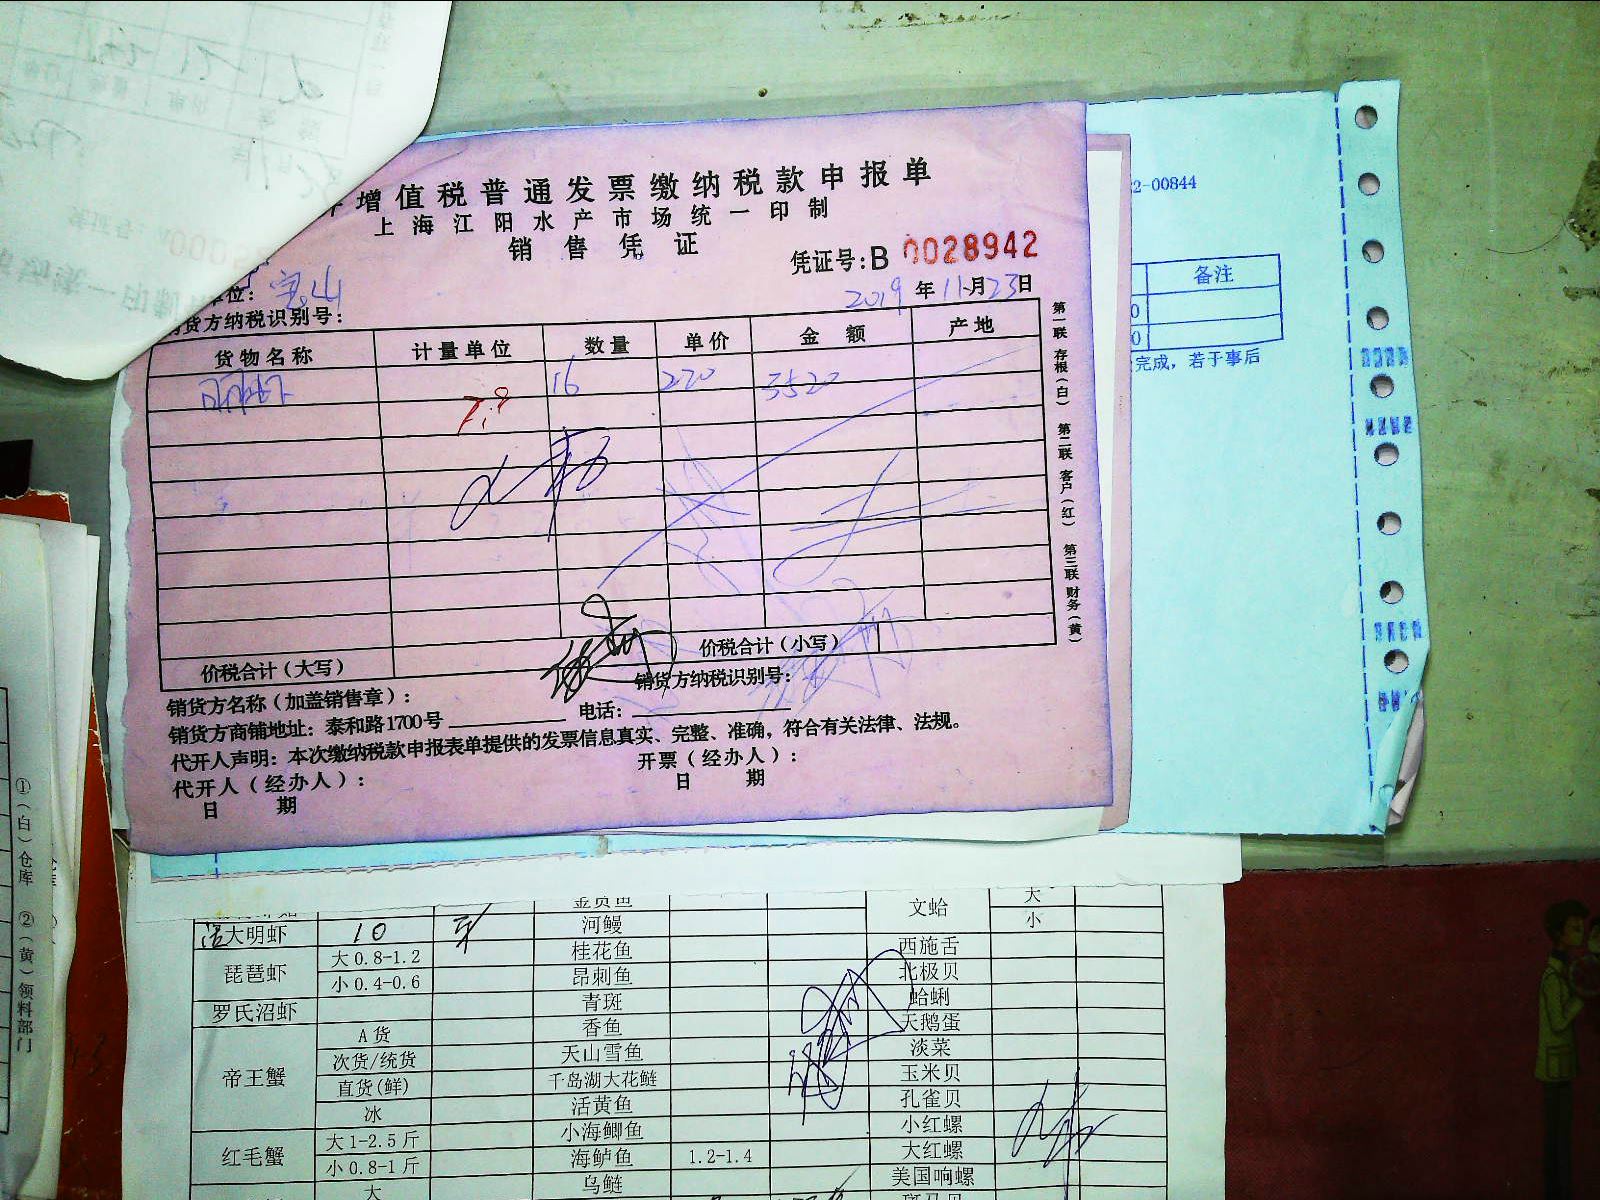 增值税普通发票缴纳税款申报单
上海江阳水产市场统一印制
销售凭证
凭证号:B 0028942
位: 宝山
2019年11月23日
销货方纳税识别号:
货物名称 计量单位 数量 单价 金额 产地
16 220 3520
价税合计(大写) 价税合计(小写)
销货方名称(加盖销售章): 销货方纳税识别号:
销货方商铺地址: 泰和路1700号 电话:
代开人声明: 本次缴纳税款申报表单提供的发票信息真实、完整、准确,符合有关法律、法规。
代开人(经办人): 开票(经办人):
日期 日期
第一联 存根(白) 第二联 客户(红) 第三联 财务(黄)
2-00844
备注
0
0
完成,若于事后
①(白)仓库 ②(黄)领料部门
金贡鱼 文蛤 大
大明虾 10 河鳗 小
琵琶虾 大0.8-1.2 桂花鱼 西施舌
小0.4-0.6 昂刺鱼 北极贝
罗氏沼虾 青斑 蛤蜊
帝王蟹 A货 香鱼 天鹅蛋
次货/统货 天山雪鱼 淡菜
直货(鲜) 千岛湖大花鲢 玉米贝
冰 活黄鱼 孔雀贝
红毛蟹 大1-2.5斤 小海鲫鱼 小红螺
小0.8-1斤 海鲈鱼 1.2-1.4 大红螺
大 乌鲢 美国响螺